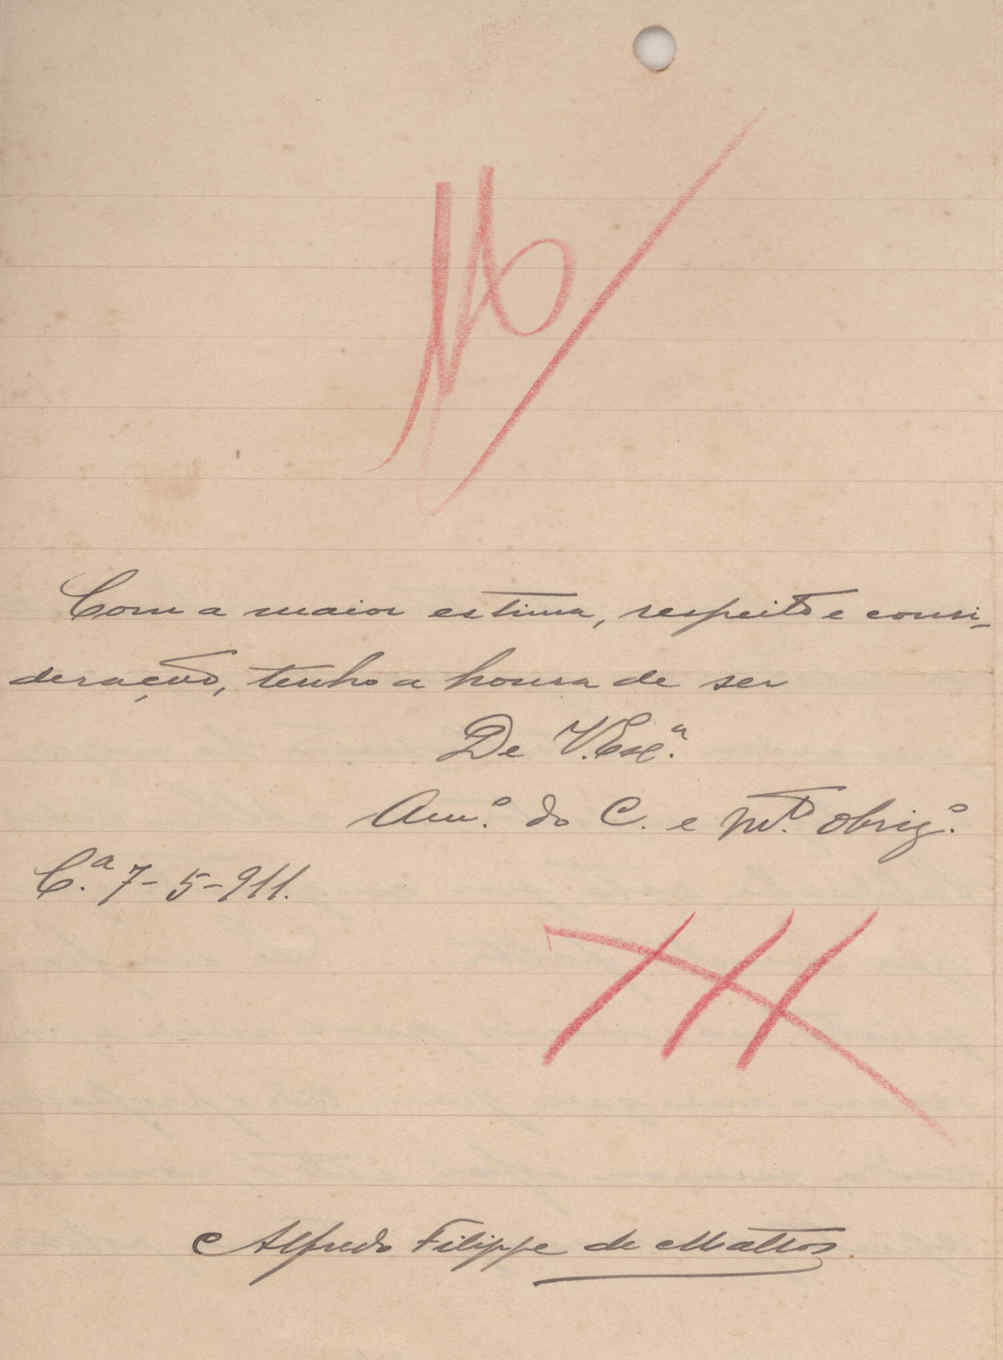 Com a maior estima, respeito e consi-
deração, tenho a honra de ser
De V. Exª.
Amº. do C. e mtº. obrigº.
C.ª 7-5-911.
Alfredo Filippe de Mattos.